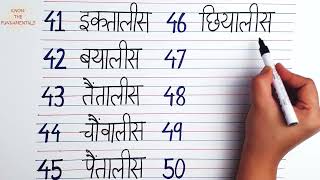 KNOW
THE
FUNDAMENTALS
41 इकतालीस 46 छियालीस
42 बयालीस 47
43 तैंतालीस 48
44 चौंवालीस 49
45 पैंतालीस 50